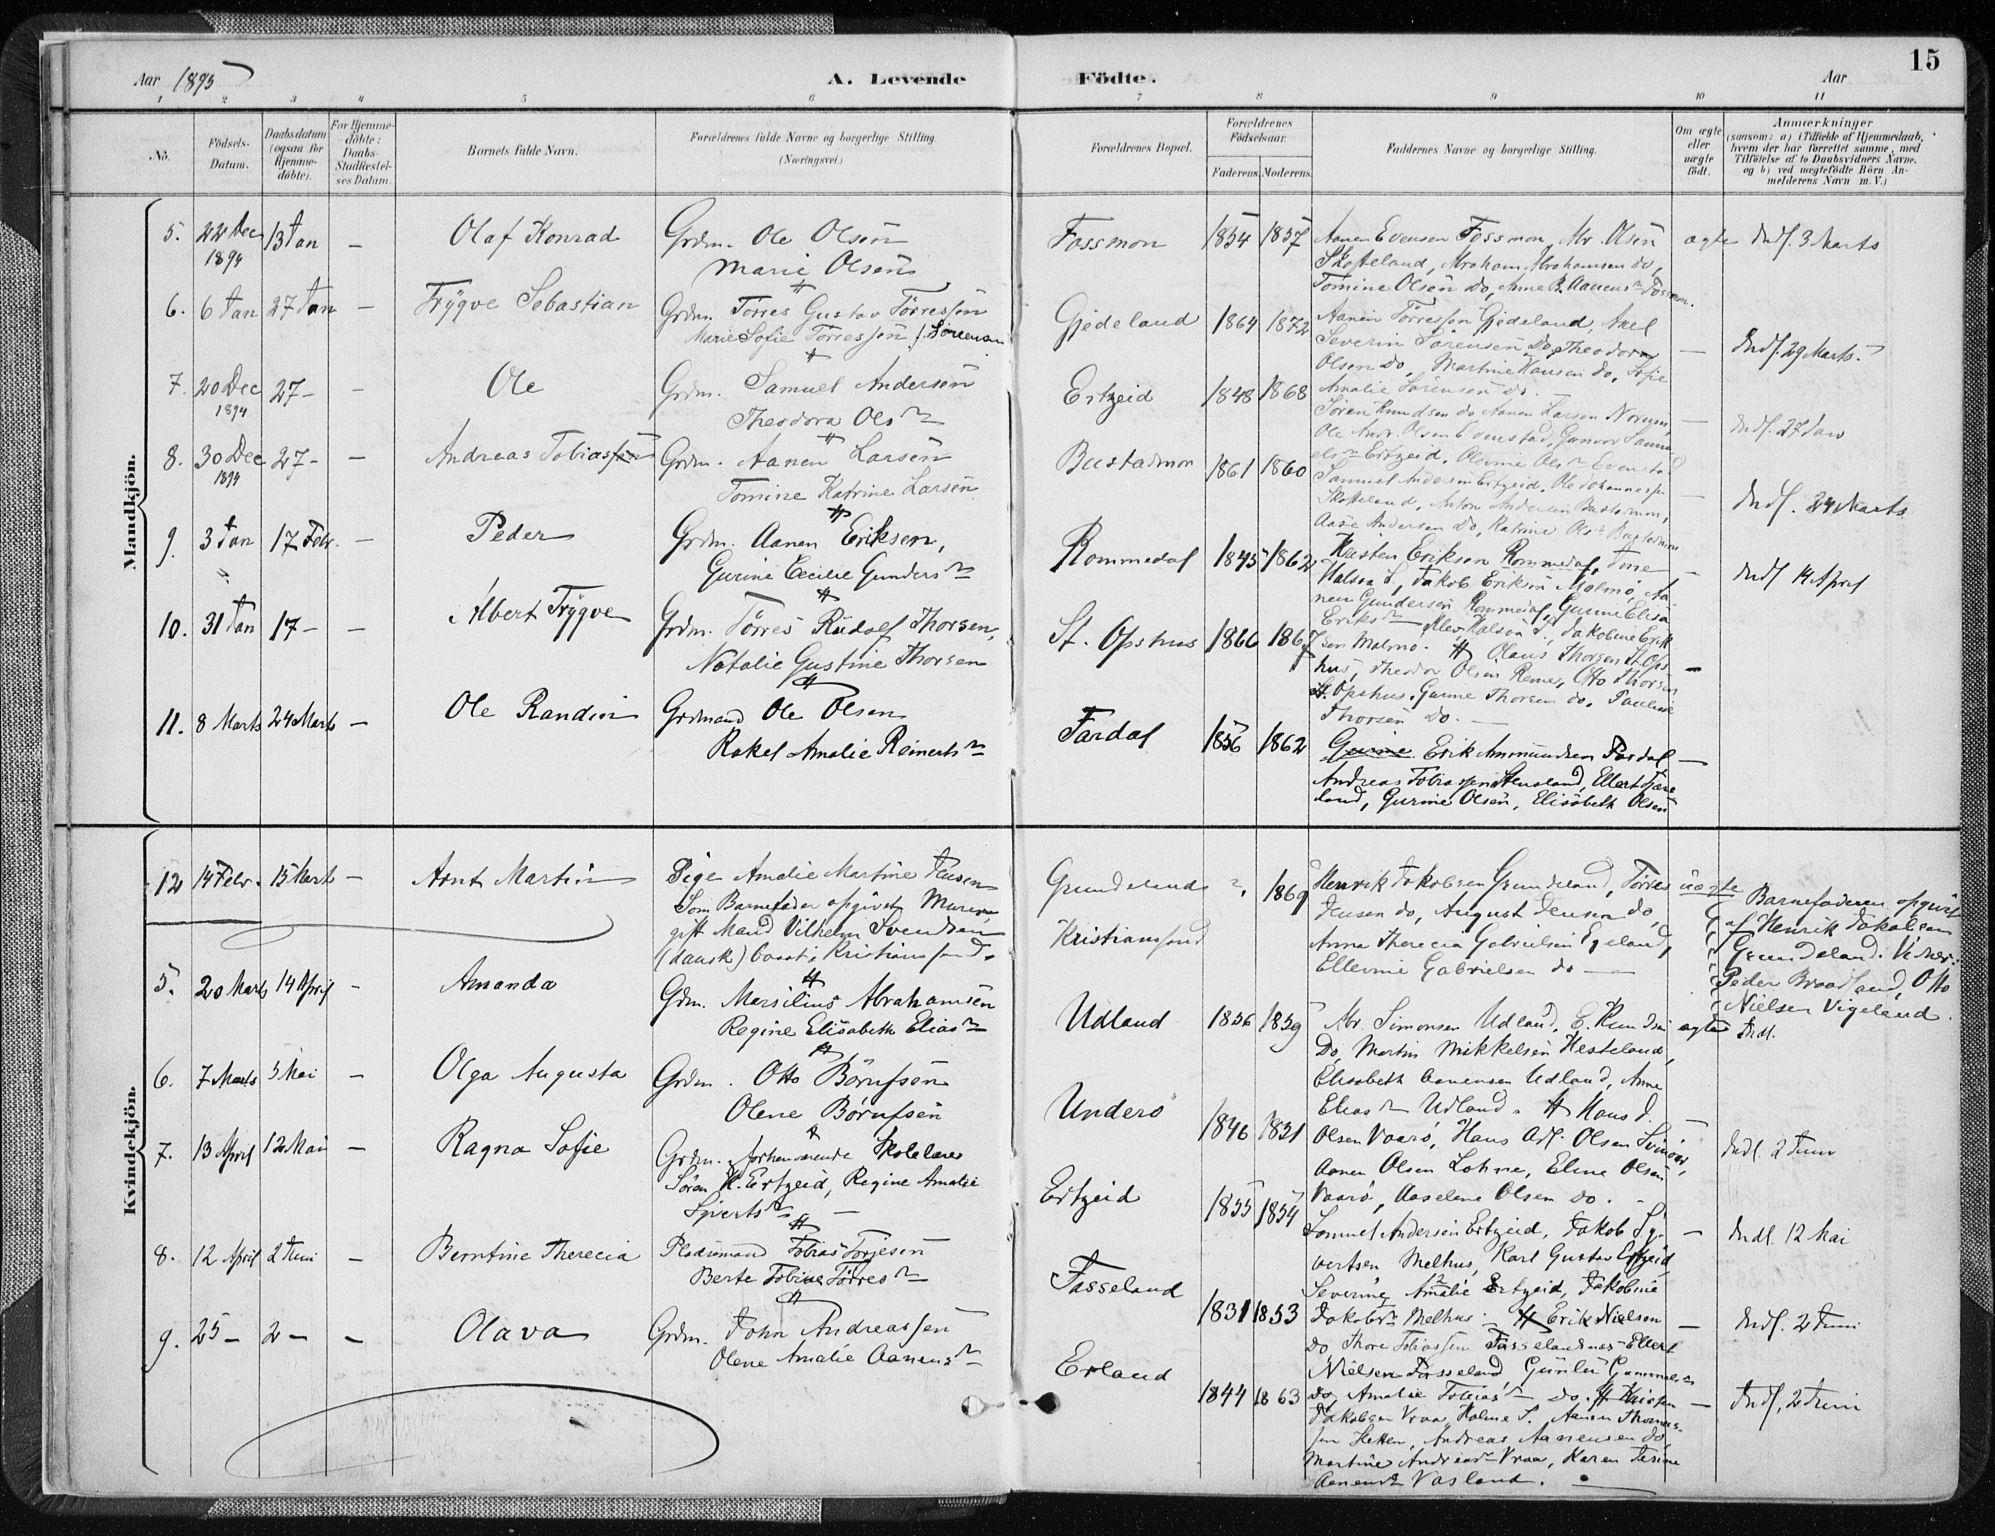 15
Aar 1895
A. Levende
Födte.
Aar
1 2 3 4 5 6 7 8 9 10 11
No.
Födsels-
Datum.
Daabsdatum
(ogsaa for
Hjemme-
döbte).
For Hjemme-
döbte:
Daabs-
Stadfæstel-
ses Datum.
Barnets fulde Navn.
Forældrenes fulde Navne og borgerlige Stilling
(Næringsvei.)
Forældrenes Bopæl.
Forældrenes
Födselsaar.
Faderens. Moderens.
Faddernes Navne og borgerlige Stilling.
Om ægte
eller
uægte
födt.
Anmærkninger
(saasom: a) i Tilfælde af Hjemmedaab,
hvem der har forrettet samme, med
Tilföielse af to Daabsvidners Navne.
og b) ved uægtefödte Börn An-
melderens Navn m. V.)
Mandkjön.
5. 22 Dec 1894 13 Jan – Olaf Konrad
Grdm. Ole Olsen
Marie Olsen
Fossmon 1854 1857
Aanen Evensen Fossmon, Abr. Olsen
Skofteland, Abraham Abrahamsen do,
Tomine Olsen do, Anne B. Aanens Fossmon.
ægte Indf. 3 Marts
6. 6 Jan 27 Jan – Trÿgve Sebastian
Grdm. Tørres Gustav Tørressen
Marie Sofie Tørressen f. Sørensen
Gjedeland 1864 1872
Aanen Tørressen Gjedeland, Axel
Severin Sørensen do, Theodora
Olsen do, Martine Hansen do, Sofie
Amalie Sørensen do.
– Indf. 29 Marts.
7. 20 Dec 1894 27 – – Ole
Grdm. Samuel Andersen
Theodora Ols
Ertzeid 1848 1868
Søren Knudsen do Aanen Larsen Norum,
Ole Andr. Olsen Evenstad, Gunvor Samu
els Ertzeid, Olevine Ols Evenstad
– Indf. 27 Jan
8. 30 Dec 1894 27 – – Andreas Tobiassen
Grdm. Aanen Larsen
Tomine Katrine Larsen
Bustadmon 1861 1860
Samuel Andersen Ertzeid, Ole Johannessen
Skofteland, Anton Andersen Bustadmon,
Aase Andersen do, Katrine Ols Bustadmon
– Indf. 24 Marts
9. 3 Jan 17 Febr. – Peder
Grdm. Aanen Eriksen,
Gurine Cecilie Gunders
Rommedal 1845 1862
Karsten Eriksen Rommedal, Tine
Halsaa S., Jakob Eriksen Malmö, Aa
nen Gundersen Rommedal, Gurine Elisa
Eriks Alex. Halsaa S., Jakobine Erik
sen Malmö.
– Indf 14 April
10. 31 Jan 17 – – Albert Trÿgve
Grdm. Tørres Rudolf Thorsen,
Natalie Gustine Thorsen
St. Opshus 1866 1867
Olaus Thorsen St. Ops
hus, Theodor Olsen Reme, Otto Thorsen
St. Opshus, Gurine Thorsen do, Pauline
Thorsen do.
–
11. 8 Marts 24 Marts – Ole Randin
Grdmand Ole Olsen
Rakel Amalie Reinerts
Fardal 1856 1862
Gurine Erik Ammundsen Fardal
Andreas Tobiassen Stensland, Ellert Tjære
land, Gurine Olsen, Elisabeth Olsen
–
12 14 Febr. 15 Marts – Arnt Martin
Pige Amalie Martine Jensen
Som Barnefader opgivet Murer,
gift Mand Vilhelm Svendsen
(dansk) bosat i Kristianssand.
Grundeland ", 1869
Kristianssand
Henrik Jakobsen Grundeland, Tørres
Jensen do, August Jensen do,
Anna Therecia Gabrielsen Egeland,
Ellevine Gabrielsen do –
uægte
Barnefaderen opgivet
af Henrik Jakobsen
Grundeland. Vidner:
Peder Braadland, Otto
Nielsen Vigeland.
Kvindekjön.
5. 20 Marts 14 April – Amanda
Gdm. Marsilius Abrahamsen
Regine Elisabeth Elias
Udland 1856 1859
Abr. Simonsen Udland, E. Knudsen
do, Martin Mikkelsen Hesteland,
Elisabeth Aanensen Udland, Anne
Elias Udland.
ægte Indf.
6. 7 Marts 5 Mai – Olga Augusta
Grdm. Otto Börufsen
Olene Börufsen
Underö 1846 1851
Hans J.
Olsen Vaarö, Hans Adf. Olsen Svinör,
Aanen Olsen Lohne, Eline Olsen
Vaarö, Aaselene Olsen do.
– Indf. 2 Juni
7. 13 April 12 Mai – Ragna Sofie
Grdm. forhenværende Skolelærer
Søren K. Ertzeid, Regine Amalie
Siverts
Ertzeid 1855 1854
Samuel Andersen Ertzeid, Jakob Sy
vertsen Melhus, Karl Gustav Ertzeid,
Severine Amalie Ertzeid, Jakobine
Jakobs Melhus.
– Indf. 12 Mai
8. 12 April 2 Juni – Berntine Therecia
Pladsmand Tobias Torjesen
Berte Tobine Tørres
Fasseland 1831 1853
Erik Nielsen
do Thore Tobiassen Fasselandnes Ellert
Nielsen Fasseland Gunlu
do, Amalie Tobias do.
– Indf. 2 Juni
9. 25 – 2 – – Olava
Grdm. John Andreassen
Olene Amalie Aanens
Erland 1844 1863
Jakobsen Vraa, Holme S., Aanen Thomas-
sen Hetten, Andreas Aanensen do,
Martine Andreas Vraa, Karen Tesine
Aanens Vasland.
– Indf, 2 Juni